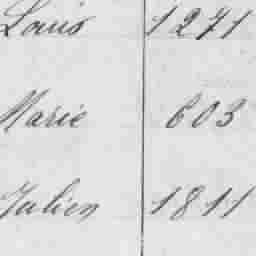 Louis 1271
Marie 603
Julien 1811